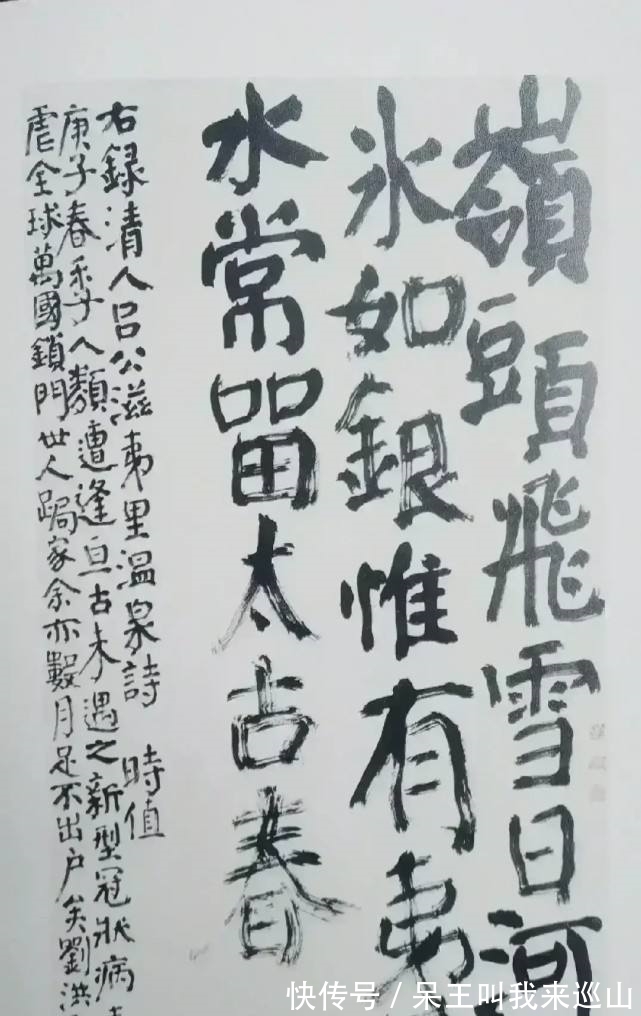 嶺頭飛雪日河
氷如銀惟有夷
水常留太古春
右録清人吕公滋夷里温泉詩 時值
庚子春季人類遭逢亘古未遇之新型冠狀病
虐全球萬國鎖門世人跼家余亦數月足不出户矣劉洪
快传号 / 呆王叫我来巡山